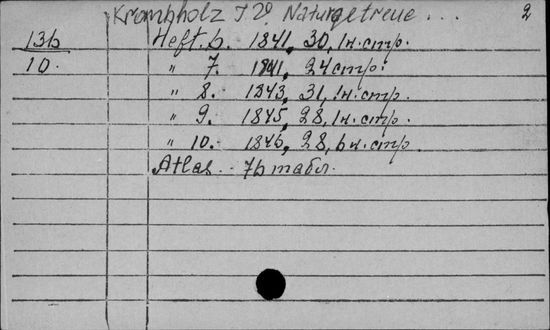 Krombholz J.V. Naturgetreue... 2
13б Heft. 6. 1841, 30, 1н. стр.
10. " 7. 1841, 24 стр.
" 8. 1843, 31, 1н. стр.
" 9. 1845, 28, 1н. стр.
" 10. 1846, 28, 6н. стр.
Atlas. - 76 табл.